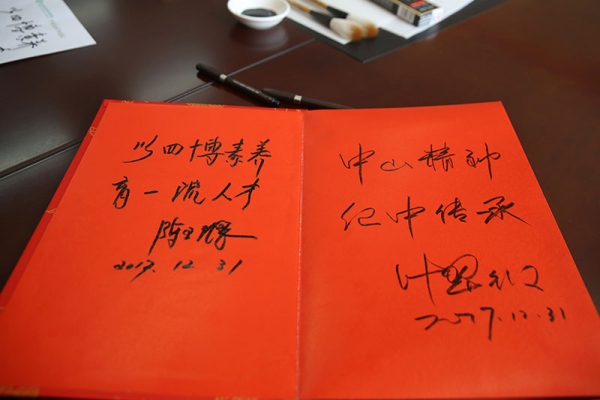 以四博素养
育一流人才
2017.12.31
中山精神
纪中传承
2017.12.31